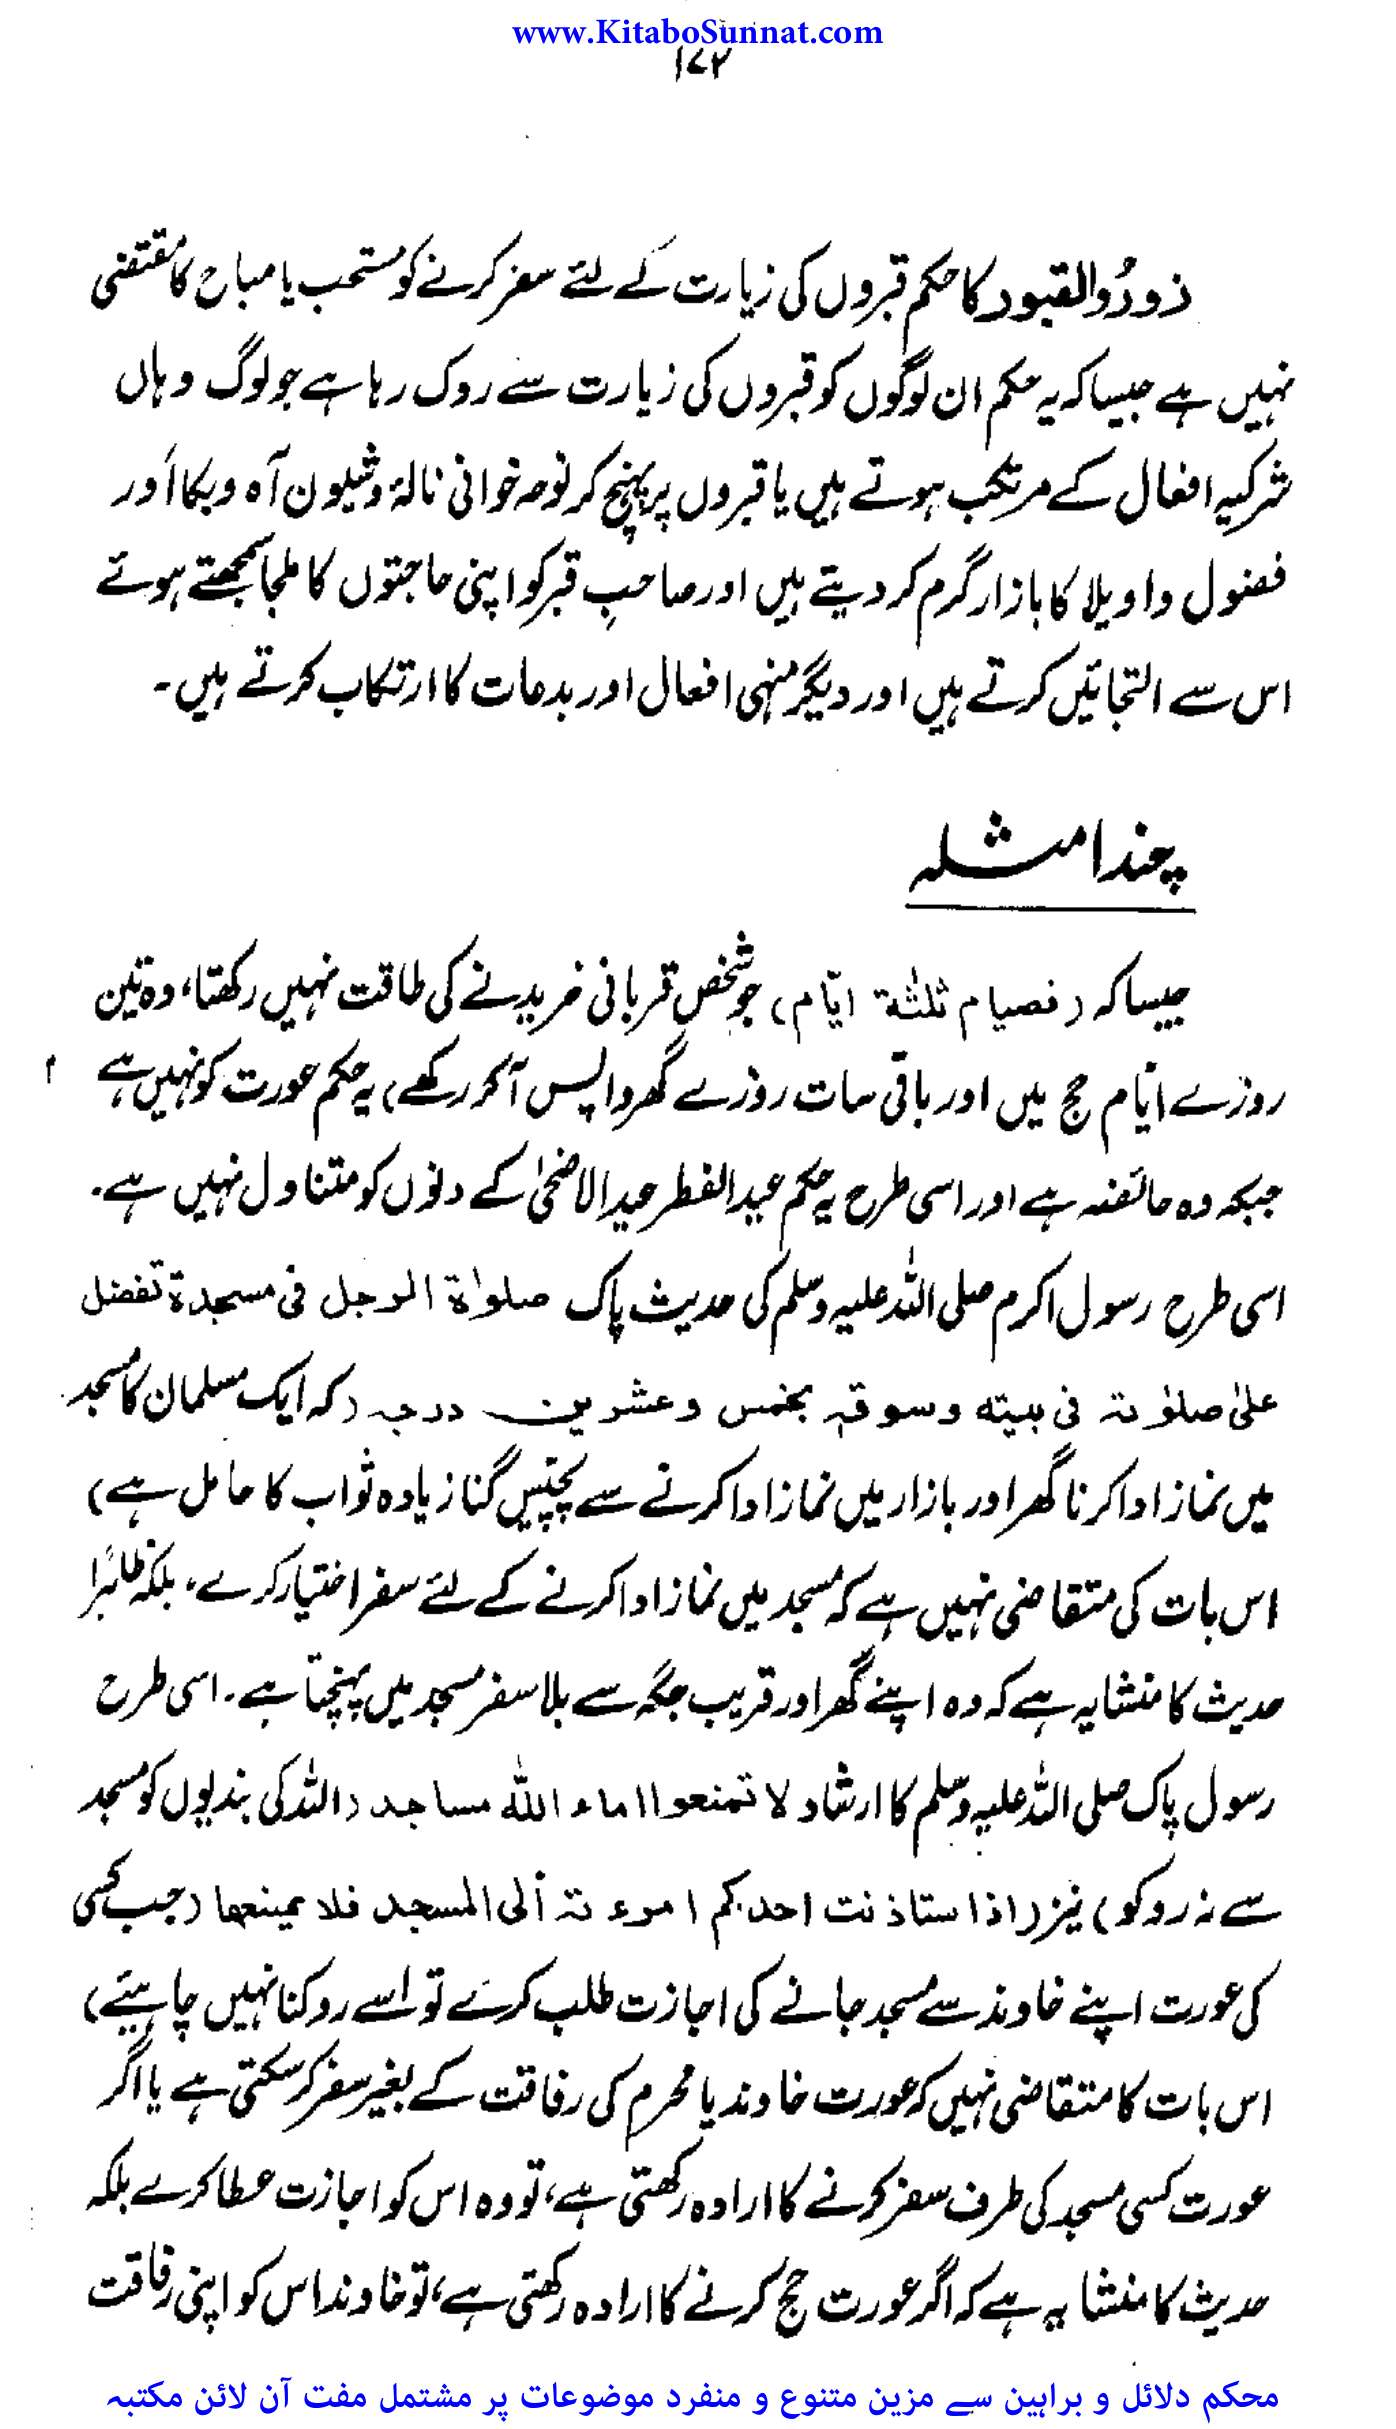 www.KitaboSunnat.com
۱۷۲
زوروالقبور کا حکم قبروں کی زیارت کے لئے سفر کرنے کو مستحب یا مباح کا مقتضی
نہیں ہے جیسا کہ یہ حکم ان لوگوں کو قبروں کی زیارت سے روک رہا ہے جو لوگ وہاں
شرکیہ افعال کے مرتکب ہوتے ہیں یا قبروں پر پہنچ کر نوحہ خوانی نالۂ وشیون آہ وبکا اور
فضول واویلا کا بازار گرم کر دیتے ہیں اور صاحبِ قبر کو اپنی حاجتوں کا ملجا سمجھتے ہوئے
اس سے التجائیں کرتے ہیں اور دیگر منہی افعال اور بدعات کا ارتکاب کرتے ہیں۔
چند امثلہ
جیسا کہ (فصیام ثلٰثة ایّام) جو شخص قربانی خریدنے کی طاقت نہیں رکھتا، وہ تین
روزے ایّام حج میں اور باقی سات روزے گھر واپس آکر رکھے) یہ حکم عورت کو نہیں ہے
جبکہ وہ حائضہ ہے اور اسی طرح یہ حکم عید الفطر عید الاضحیٰ کے دنوں کو متناول نہیں ہے۔
اسی طرح رسول اکرم صلی اللہ علیہ وسلم کی حدیث پاک صلوٰة الرجل فی مسجدة تفضل
علیٰ صلوٰتہ فی بیته وسوقہ بخمس وعشرین درجہ (کہ ایک مسلمان کا مسجد
میں نماز ادا کرنا گھر اور بازار میں نماز ادا کرنے سے پچیس گنا زیادہ ثواب کا حامل ہے)
اس بات کی متقاضی نہیں ہے کہ مسجد میں نماز ادا کرنے کے لئے سفر اختیار کرے، بلکہ ظاہرًا
حدیث کا منشا یہ ہے کہ وہ اپنے گھر اور قریب جگہ سے بلا سفر مسجد میں پہنچتا ہے۔ اسی طرح
رسول پاک صلی اللہ علیہ وسلم کا ارشاد لا تمنعوا اماء اللہ مساجد (اللہ کی بندیوں کو مسجد
سے نہ روکو) نیز (اذا ستاذنت احدکم امرءتہ ألی المسجد فلا یمینعھا (جب کسی
کی عورت اپنے خاوند سے مسجد جانے کی اجازت طلب کرے تو اسے روکنا نہیں چاہیئے)
اس بات کا متقاضی نہیں کہ عورت خاوند یا محرم کی رفاقت کے بغیر سفر کر سکتی ہے یا اگر
عورت کسی مسجد کی طرف سفر کرنے کا ارادہ رکھتی ہے، تو وہ اس کو اجازت عطا کرے بلکہ
حدیث کا منشا یہ ہے کہ اگر عورت حج کرنے کا ارادہ رکھتی ہے، تو خاوند اس کو اپنی رفاقت
محکم دلائل و براہین سے مزین متنوع و منفرد موضوعات پر مشتمل مفت آن لائن مکتبہ